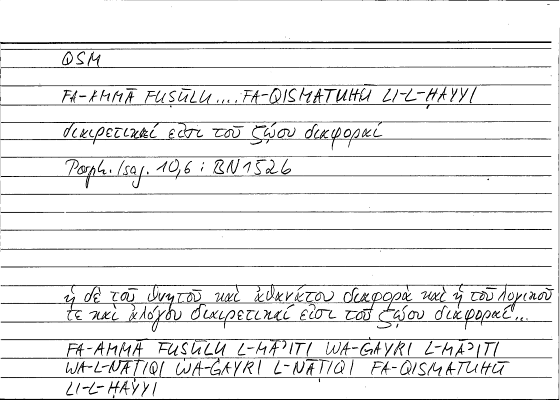 QSM
FA-AMMĀ FUṢŪLU .... FA-QISMATUHŪ LI-L-ḤAYYI
διαιρετικαί εἰσι τοῦ ζῴου διαφοραί
Porph. Isag. 10,6 : BN 152b
ἡ δὲ τοῦ θνητοῦ καὶ ἀθανάτου διαφορὰ καὶ ἡ τοῦ λογικοῦ
τε καὶ ἀλόγου διαιρετικαί εἰσι τοῦ ζῴου διαφοραί...
FA-AMMĀ FUṢŪLU L-MĀʾITI WA-ĠAYRI L-MĀʾITI
WA-L-NĀṬIQI WA-ĠAYRI L-NĀṬIQI FA-QISMATUHŪ
LI-L-ḤAYYI